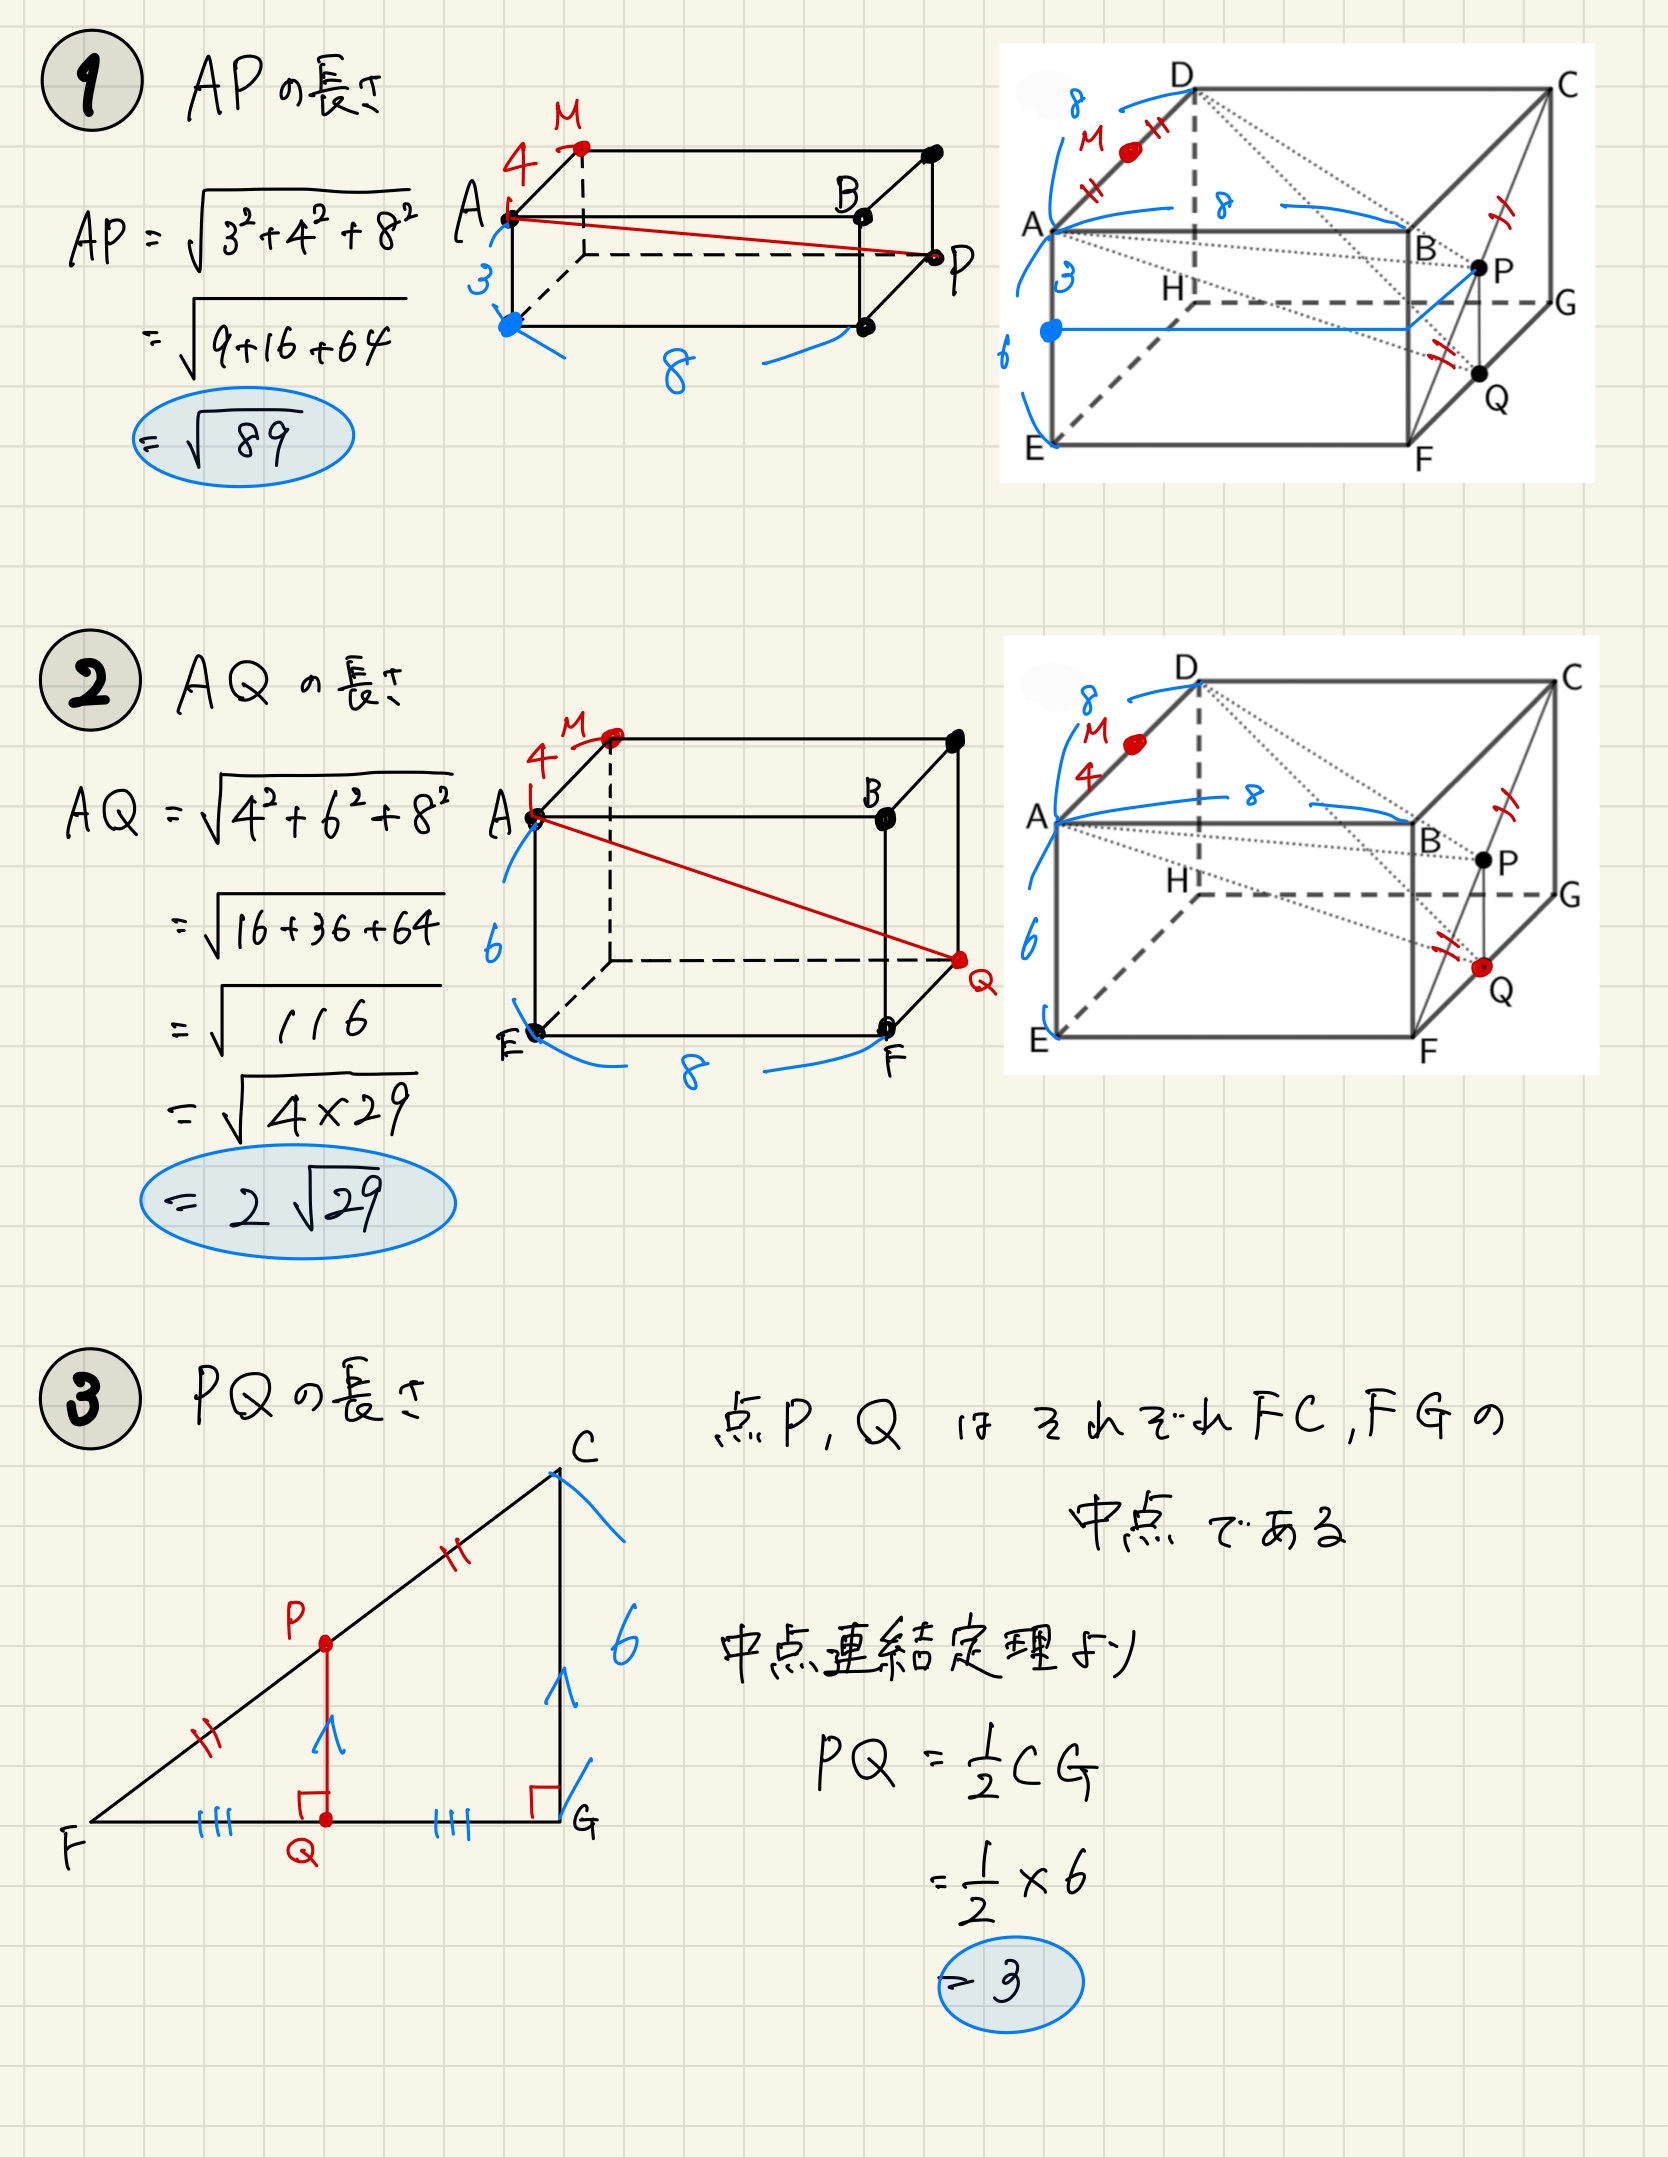 1 APの長さ
AP = √3²+4²+8²
= √9+16+64
= √89
M
4
A
B
3
P
8
D
C
8
M
8
A
B
3
P
H
G
6
Q
E
F
2 AQの長さ
AQ = √4²+6²+8²
= √16+36+64
= √116
= √4×29
= 2√29
M
4
A
B
6
Q
E
F
8
D
C
8
M
4
8
A
B
P
H
G
6
Q
E
F
3 PQの長さ
C
P
6
F
Q
G
点P,Q は それぞれ FC,FGの
中点である
中点連結定理より
PQ = 1/2 CG
= 1/2 × 6
= 3